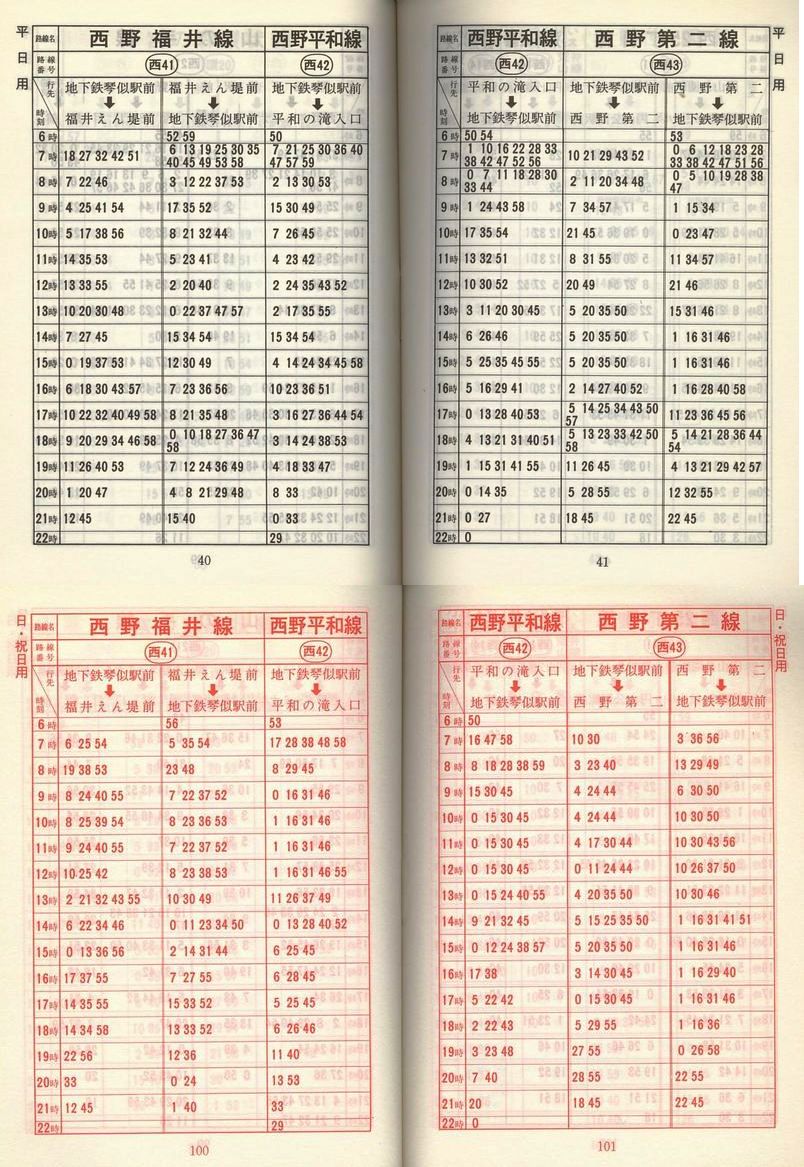 平日用
路線名 西野福井線 西野平和線
路線番号 西41 西42
行先 時刻 地下鉄琴似駅前 ➡ 福井えん堤前 福井えん堤前 ➡ 地下鉄琴似駅前 地下鉄琴似駅前 ➡ 平和の滝入口
6時 52 59 50
7時 18 27 32 42 51 6 13 19 25 30 35 40 45 49 53 58 7 21 25 30 36 40 47 57 59
8時 7 22 46 3 12 22 37 53 2 13 30 53
9時 4 25 41 54 17 35 52 15 30 49
10時 5 17 38 56 8 21 32 44 7 26 45
11時 14 35 53 5 23 41 4 23 42
12時 13 33 55 2 20 40 2 24 35 43 52
13時 10 20 30 48 0 22 37 47 57 2 17 35 55
14時 7 27 45 15 34 54 15 34 54
15時 0 19 37 53 12 30 49 4 14 24 34 45 58
16時 6 18 30 43 57 7 23 36 56 10 23 36 51
17時 10 22 32 40 49 58 8 21 35 48 3 16 27 36 44 54
18時 9 20 29 34 46 58 0 10 18 27 36 47 58 3 14 24 38 53
19時 11 26 40 53 7 12 24 36 49 4 18 33 47
20時 1 20 47 4 8 21 29 48 8 33
21時 12 45 15 40 0 33
22時 29
40
平日用
路線名 西野平和線 西野第二線
路線番号 西42 西43
行先 時刻 平和の滝入口 ➡ 地下鉄琴似駅前 地下鉄琴似駅前 ➡ 西野第二 西野第二 ➡ 地下鉄琴似駅前
6時 50 54 53
7時 1 10 16 22 28 33 38 42 47 52 56 10 21 29 43 52 0 6 12 18 23 28 33 38 42 47 51 56
8時 0 7 11 18 28 30 33 44 2 11 20 34 48 0 5 10 19 28 38 47
9時 1 24 43 58 7 34 57 1 15 34
10時 17 35 54 21 45 0 23 47
11時 13 32 51 8 31 55 11 34 57
12時 10 30 52 20 49 21 46
13時 3 11 20 30 45 5 20 35 50 15 31 46
14時 6 26 46 5 20 35 50 1 16 31 46
15時 5 25 35 45 55 5 20 35 50 1 16 31 46
16時 5 16 29 41 2 14 27 40 52 1 16 28 40 58
17時 0 13 28 40 53 5 14 25 34 43 50 57 11 23 36 45 56
18時 4 13 21 31 40 51 5 13 23 33 42 50 58 5 14 21 28 36 44 54
19時 1 15 31 41 55 11 26 45 4 13 21 29 42 57
20時 0 14 35 5 28 55 12 32 55
21時 0 27 18 45 22 45
22時 0
41
日・祝日用
路線名 西野福井線 西野平和線
路線番号 西41 西42
行先 時刻 地下鉄琴似駅前 ➡ 福井えん堤前 福井えん堤前 ➡ 地下鉄琴似駅前 地下鉄琴似駅前 ➡ 平和の滝入口
6時 56 53
7時 6 25 54 5 35 54 17 28 38 48 58
8時 19 38 53 23 48 8 29 45
9時 8 24 40 55 7 22 37 52 0 16 31 46
10時 8 25 39 54 8 23 36 53 1 16 31 46
11時 9 24 40 55 7 22 37 52 1 16 31 46
12時 10 25 42 8 23 38 53 1 16 31 46 55
13時 2 21 32 43 55 10 30 49 11 26 37 49
14時 6 22 34 46 0 11 23 34 50 0 13 28 40 52
15時 0 13 36 56 2 14 31 44 6 25 45
16時 17 37 55 7 27 55 6 28 45
17時 14 35 55 15 33 52 5 25 45
18時 14 34 58 13 33 52 6 26 46
19時 22 56 12 36 11 40
20時 33 0 24 13 53
21時 12 45 1 40 33
22時 29
100
日・祝日用
路線名 西野平和線 西野第二線
路線番号 西42 西43
行先 時刻 平和の滝入口 ➡ 地下鉄琴似駅前 地下鉄琴似駅前 ➡ 西野第二 西野第二 ➡ 地下鉄琴似駅前
6時 50
7時 16 47 58 10 30 3 36 56
8時 8 18 28 38 59 3 23 40 13 29 49
9時 15 30 45 4 24 44 6 30 50
10時 0 15 30 45 4 24 44 10 30 50
11時 0 15 30 45 4 17 30 44 10 30 43 56
12時 0 15 30 45 0 11 24 44 10 26 37 50
13時 0 15 24 40 55 4 20 35 50 10 30 46
14時 9 21 32 45 5 15 25 35 50 1 16 31 41 51
15時 0 12 24 38 57 5 20 35 50 1 16 31 46
16時 17 38 3 14 30 45 1 16 29 40
17時 5 22 42 0 15 30 45 1 16 31 46
18時 2 22 43 5 29 55 1 16 36
19時 3 23 48 27 55 0 26 58
20時 7 40 28 55 22 55
21時 20 18 45 22 45
22時 0
101